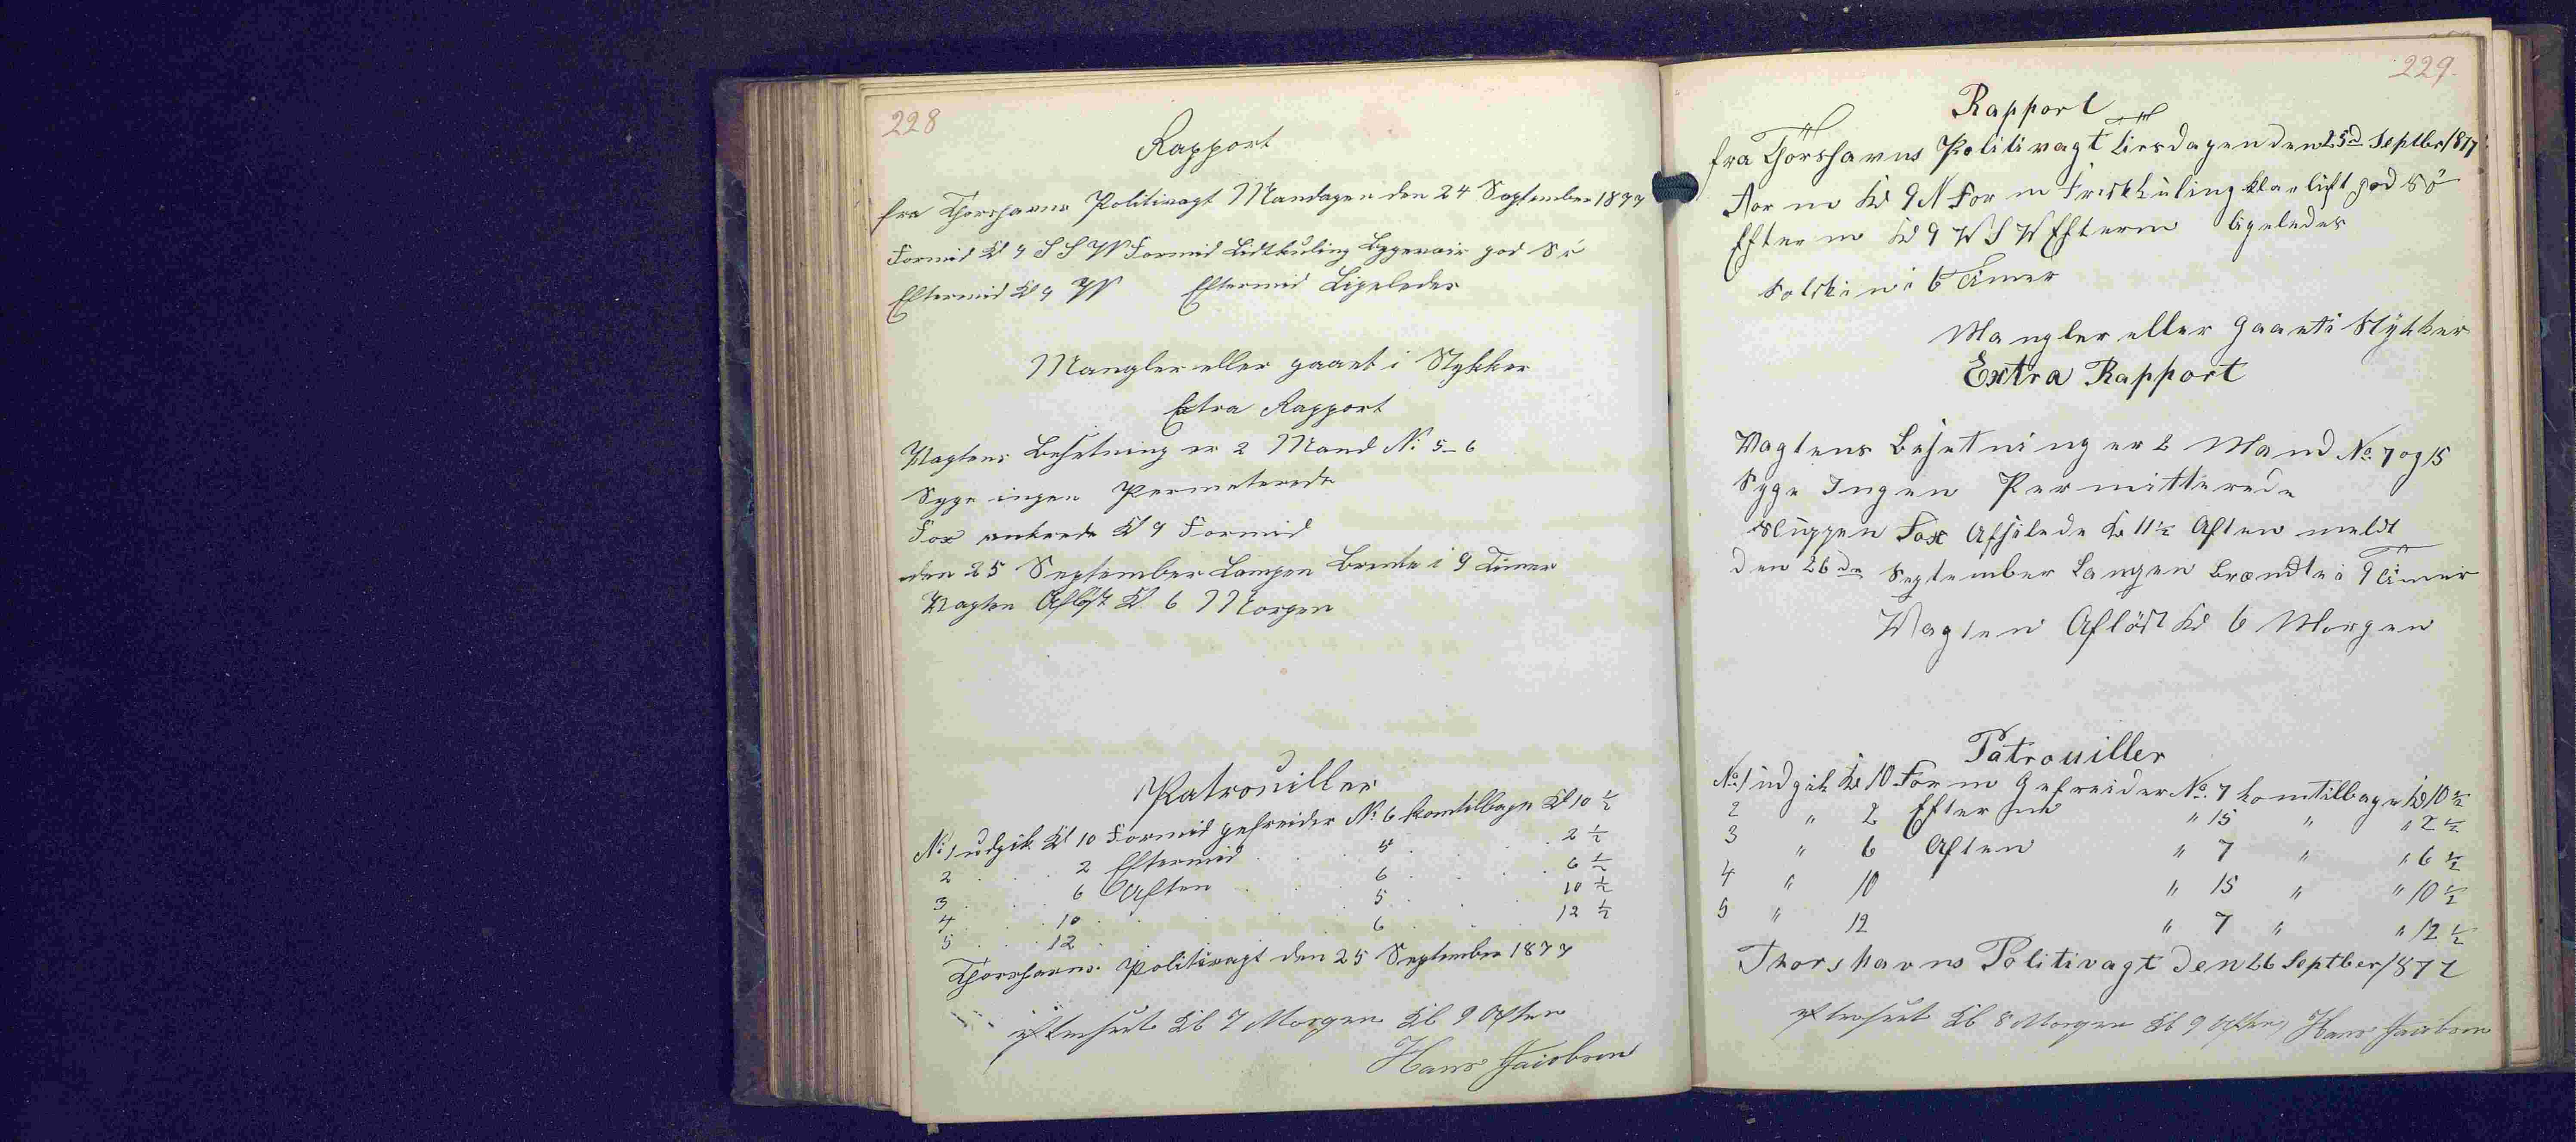 228
Rapport
fra Thorshavns Politivagt Mandagen den 24 September 1877
Formid Kl 9 S S W Formid Lidtkuling Lygervair god Sö
Eftermid Kl 9 W Eftermid Ligeledes
Mangler eller gaaet i Stykker
Extra Rapport
Vagtens Besetning er 2 Mand No 5-6
Syge ingen Permeterede
Fox ankrede Kl 9 Formid
den 25 September Lampen Brente i 9 Timer
Vagten Aflöst Kl. 6 Morgen
Patrouiller
No 1 udgik Kl 10 Formid gefreider No 6 komtilbage Kl 10 ½
2 . . . 2 Eftermid . . . 5 . . . 2 ½
3 . . . 6 Aften . . . 6 . . . 6 ½
4 . . . 10 . . . 5 . . . 10 ½
5 . . . 12 . . . 6 . . . 12 ½
Thorshavns Politivagt den 25 September 1877
efterseet Kl 7 Morgen Kl 9 Aften
Hans Jacobsen
229.
Rapport
fra Thorshavns Politivagt Tirsdagen den 25d Septbr 1877
For m Kl 9 N For m Friskkuling klar lüft god Sö
Efter m Kl 9 W S W Efterm ligeledes
Solskin i 6 Timer
Mangler eller gaaet i Stÿkker
Extra Rapport
Vagtens Besetning er 2 Mand No. 7 og 15
Syge Ingen Permitterede
Sluppen Fox Afseilede Kl 11½ Aften meldt
den 26de September Lampen Brændte i 9 Timer
Vagten Aflöst Kl 6 Morgen
Patrouiller
No. 1 udgik Kl 10 Form Gefreider No. 7 komtilbage Kl 10 ½
2 " 2 Efter m " 15 " " 2 ½
3 " 6 Aften " 7 " " 6 ½
4 " 10 " 15 " " 10 ½
5 " 12 " 7 " " 12 ½
Thorshavns Politivagt Den 26 Septber 1877
efterseet Kl 8 Morgen Kl 9 Aften Hans Jacobsen